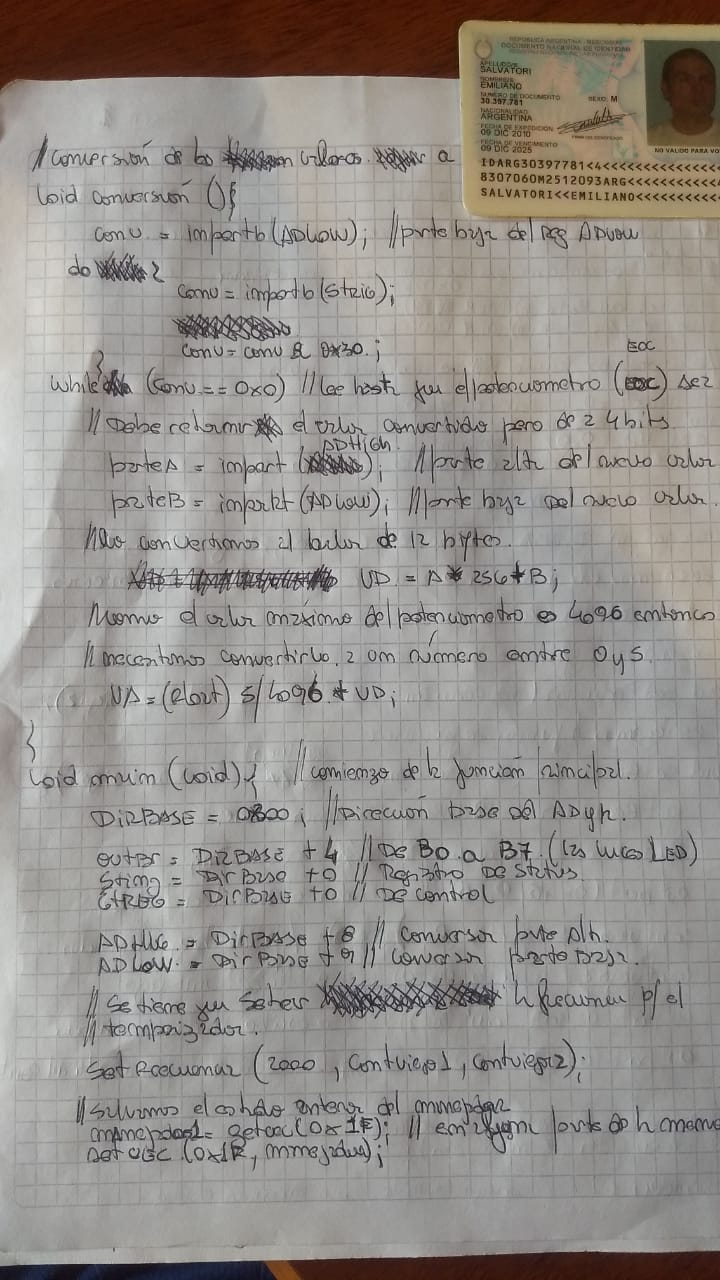 REPUBLICA ARGENTINA - MERCOSUR
DOCUMENTO NACIONAL DE IDENTIDAD
APELLIDO
SALVATORI
NOMBRE
EMILIANO
NUMERO DE DOCUMENTO
30.397.781
SEXO: M
NACIONALIDAD
ARGENTINA
FECHA DE EXPEDICION
09 DIC 2010
FECHA DE VENCIMIENTO
09 DIC 2025
NO VALIDO PARA VO
IDARG30397781<4<<<<<<<<<<<<
8307060M2512093ARG<<<<<<<
SALVATORI<<EMILIANO<<<<<<<<
// Conversión de los valores a
void conversión (){
conv = importb (ADLOW); // parte baja del Reg ADLow
do {
conv = importb (Streg);
conv = conv & 0x30;
}
EOC
while (conv == 0x0) // Lee hasta que el potenciometro (EOC) sea
// Debe retornar el valor convertido pero de 24 bits
ADHigh
parteA = import ( ); // parte alta del nuevo valor
parteB = import (ADLOW); // parte baja del nuevo valor
// convertimos al valor de 12 bytes.
VD = A * 256 + B;
// Como el valor máximo del potenciometro es 4096 entonces
// necesitamos convertirlo a un número entre 0 y 5.
VA = (float) 5/4096 * VD;
}
void main (void) { // comienzo de la función principal.
DirBASE = 0x800; // Dirección base del
outBr = DirBASE + 4 // De B0 a B7. (las luces LED)
Streg = Dir Base +0 // Registro De Status
CtREG = DirBase +0 // De control
ADHIG = DirBASE + 8 // conversor parte Alta.
ADLOW = Dir Base + 9 // conversor parte baja.
// Se tiene que setear la frecuencia p/ el
// temporizador.
set Frecuencia (2000, Contviejo1, contviejo2);
// Salvamos el estado anterior del manejador
= getvec (0x1F); // en algun parte de la memo
set vec (0x1F, manejador);